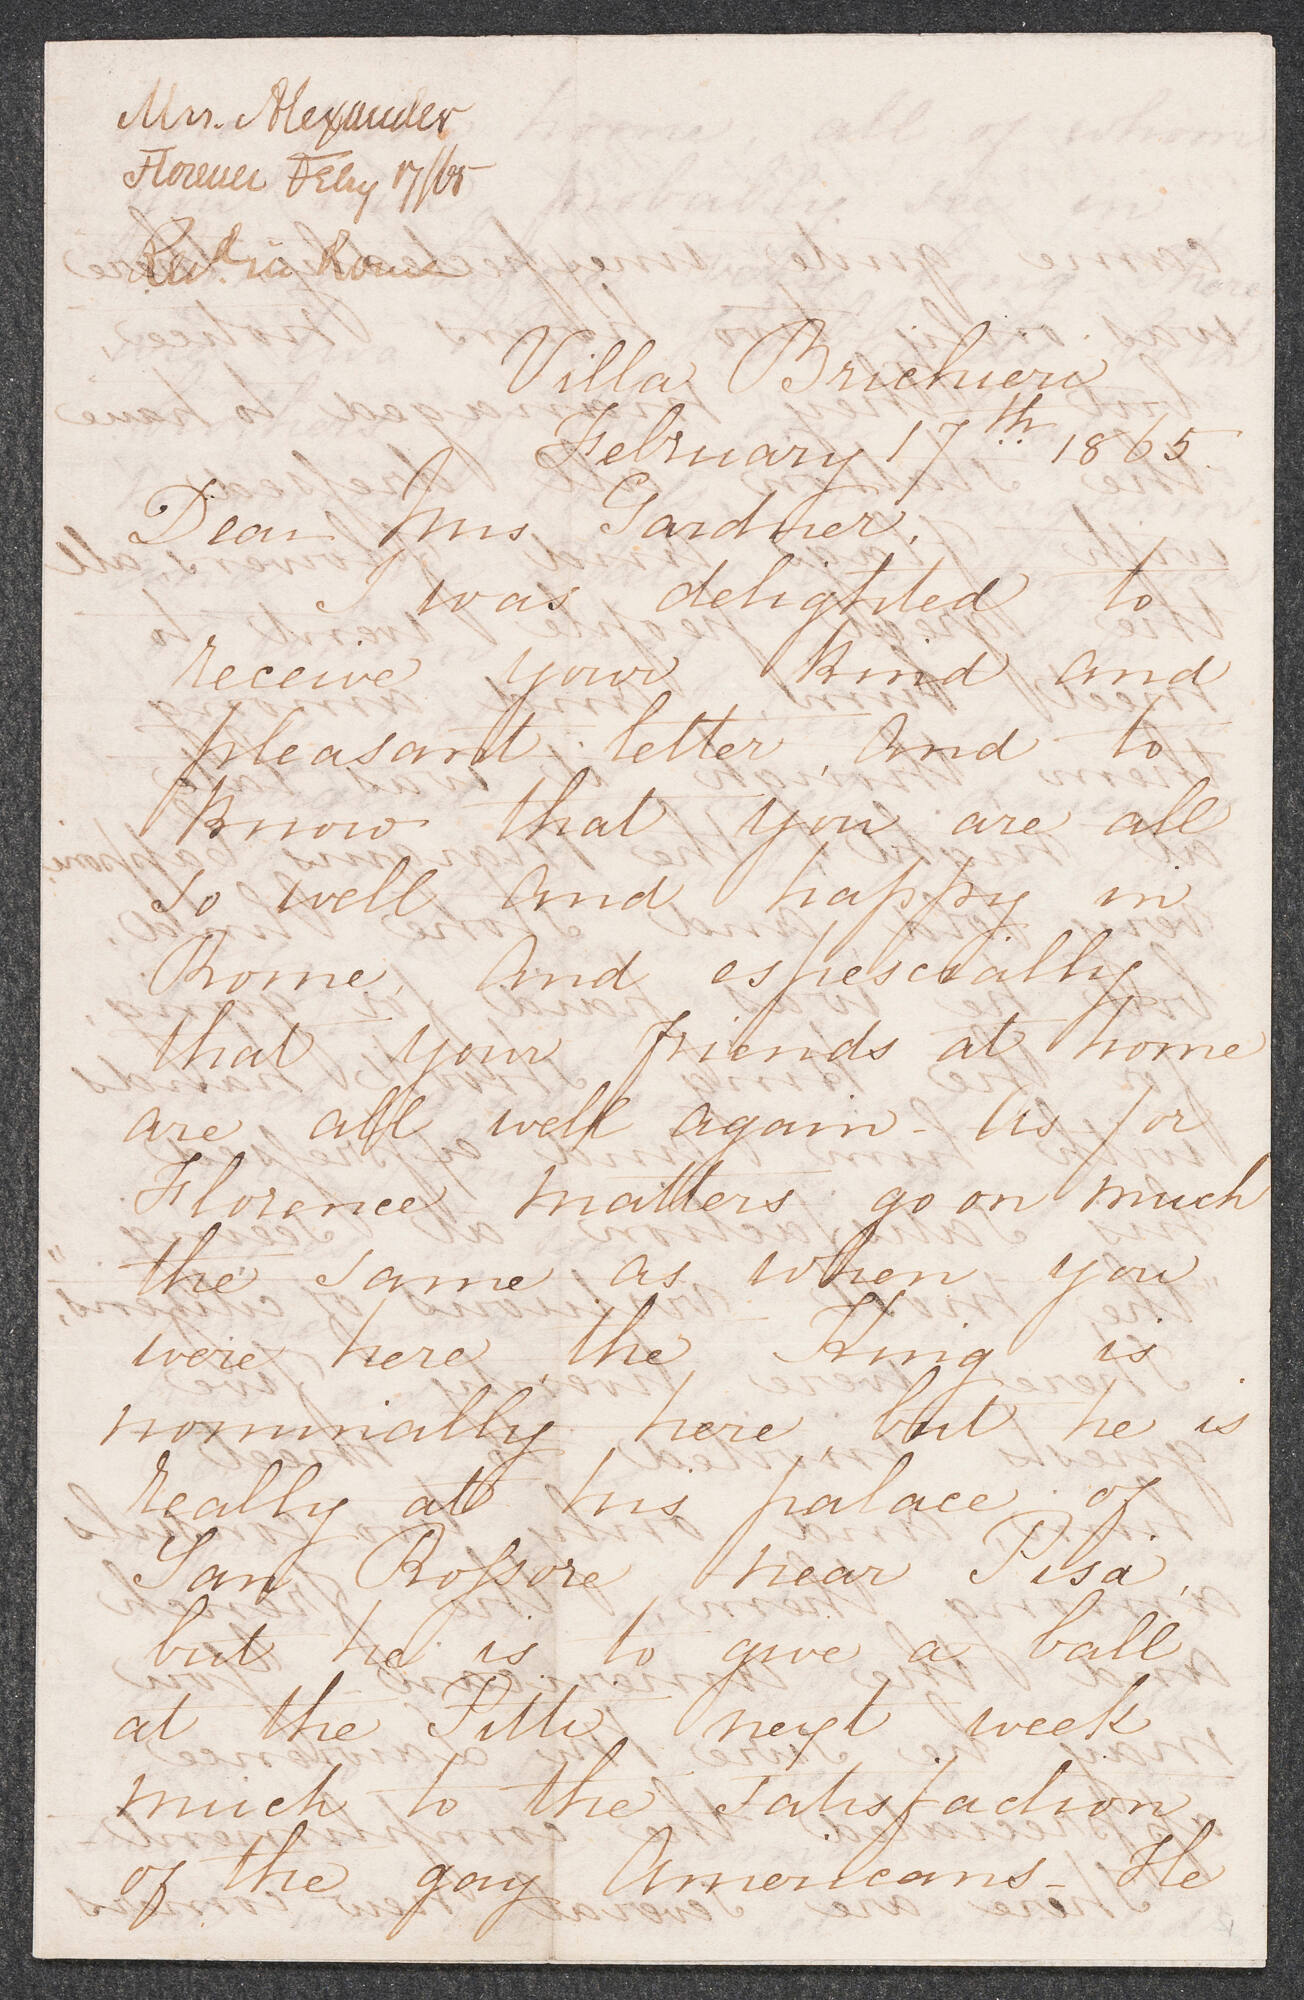 Mrs. Alexander
Florence Feby 17/65
Recd. in Rome
Villa Brichieri
February 17th. 1865.
Dear Mrs Gardner,
I was delighted to
receive your kind and
pleasant letter, and to
know that you are all
so well and happy in
Rome, and espescially
that your friends at home
are all well again - As for
Florence matters go on much
the same as when you
were here, the King is
nominally here, but he is
really at his palace of
San Rossore near Pisa,
but he is to give a ball
at the Pitti next week
much to the satisfaction
of the gay Americans - He